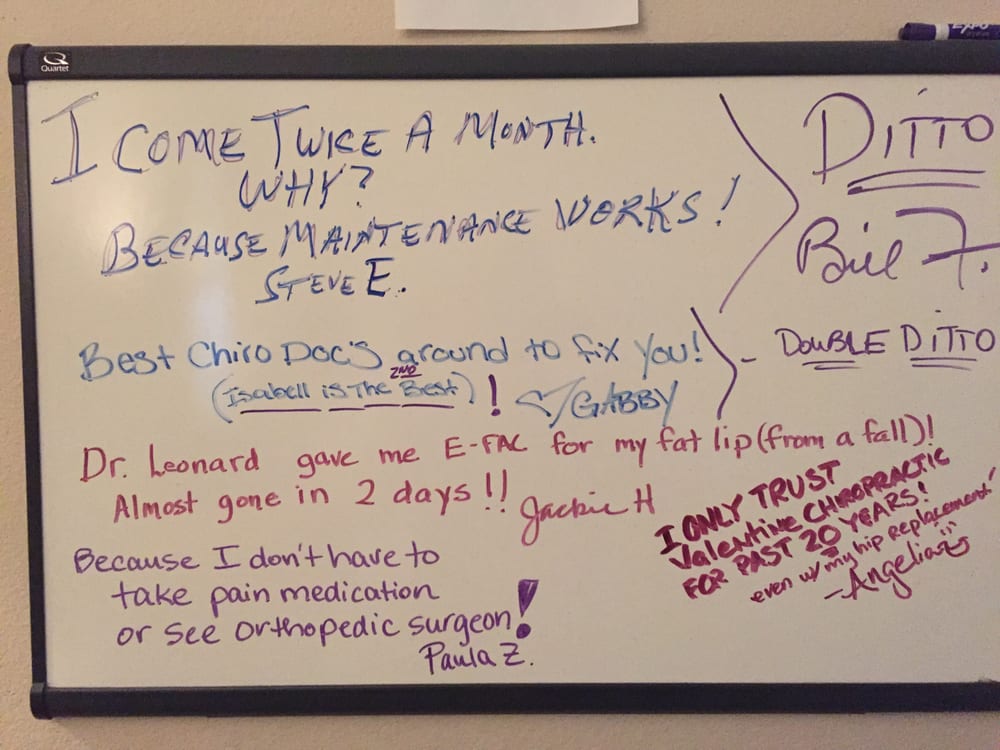 Quartet
EXPO
I COME TWICE A MONTH.
WHY?
BECAUSE MAINTENANCE WORKS!
STEVE E.
DITTO
Bill F.
Best Chiro Doc's around to fix you!
2ND
(Isabell is The Best)!
GABBY
- DOUBLE DITTO
Dr. Leonard gave me E-FAC for my fat lip (from a fall)!
Almost gone in 2 days!!
Jackie H
I ONLY TRUST
Valentine CHIROPRACTIC
FOR PAST 20 YEARS!
even w/ my hip replacement!
-Angelia
Because I don't have to
take pain medication
or see orthopedic surgeon!
Paula Z.